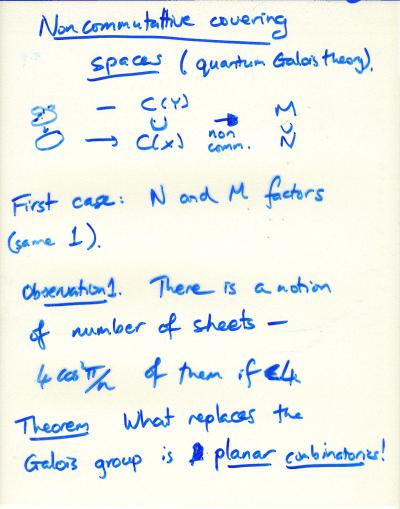 Noncommutative covering
spaces (quantum Galois theory).
— C(Y) M
∪ → ∪
→ C(X) non comm. N
First case: N and M factors
(same 1).
Observation 1. There is a notion
of number of sheets —
4 cos²π/n of them if <4
Theorem What replaces the
Galois group is planar combinatorics!